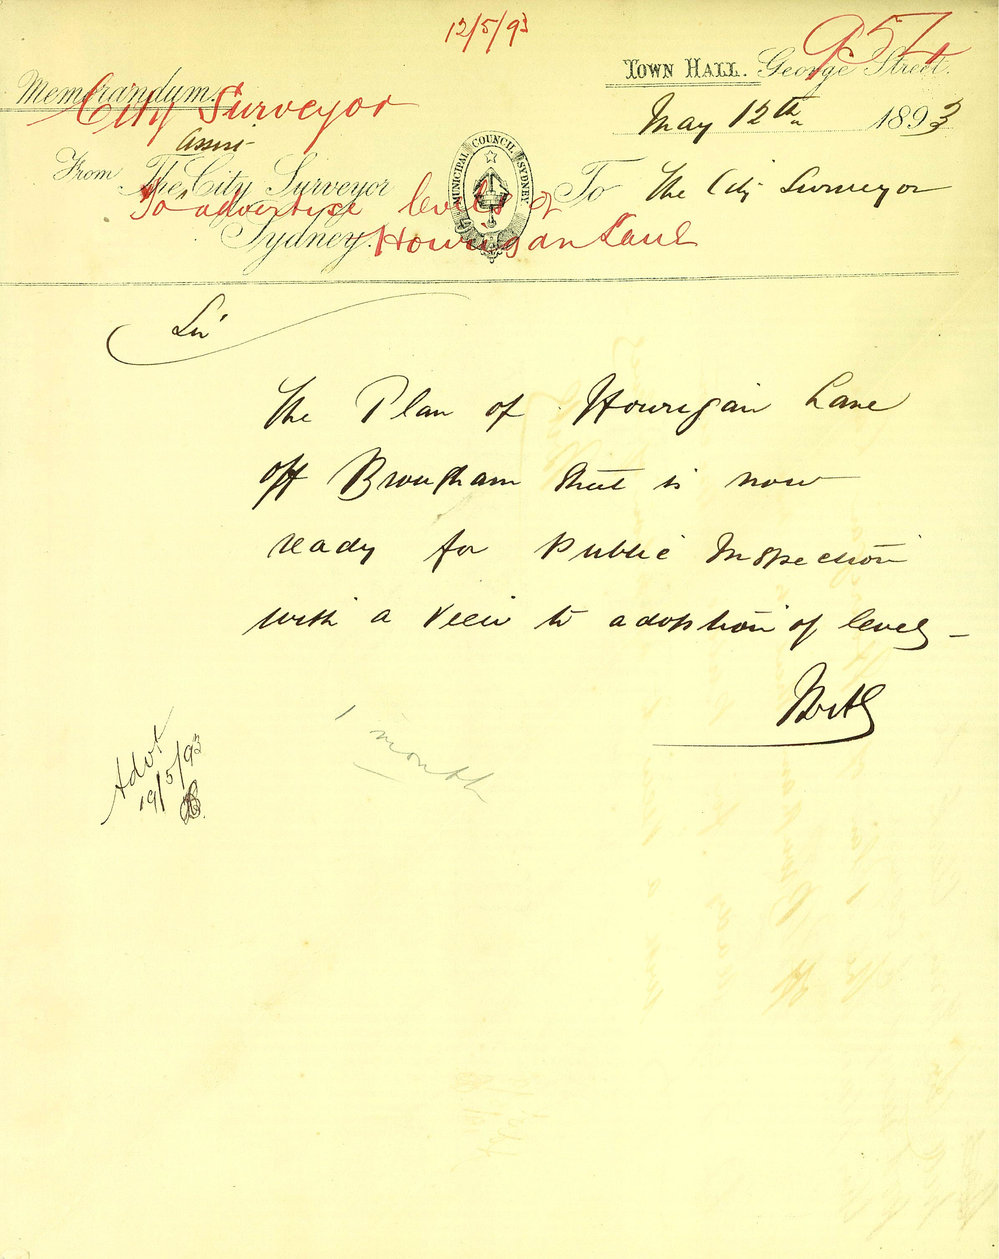 12/5/93
954
TOWN HALL. George Street.
Memorandum.
City Surveyor
May 12th 1893
Assis
From The City Surveyor
MUNICIPAL COUNCIL SYDNEY
To The City Surveyor
To advertise levels of
Sydney.
Hourigan Lane
Sir
The Plan of Hourigan Lane
off Brougham Street is now
ready for Public Inspection
with a view to adoption of levels
1 month
Advt
19/5/93